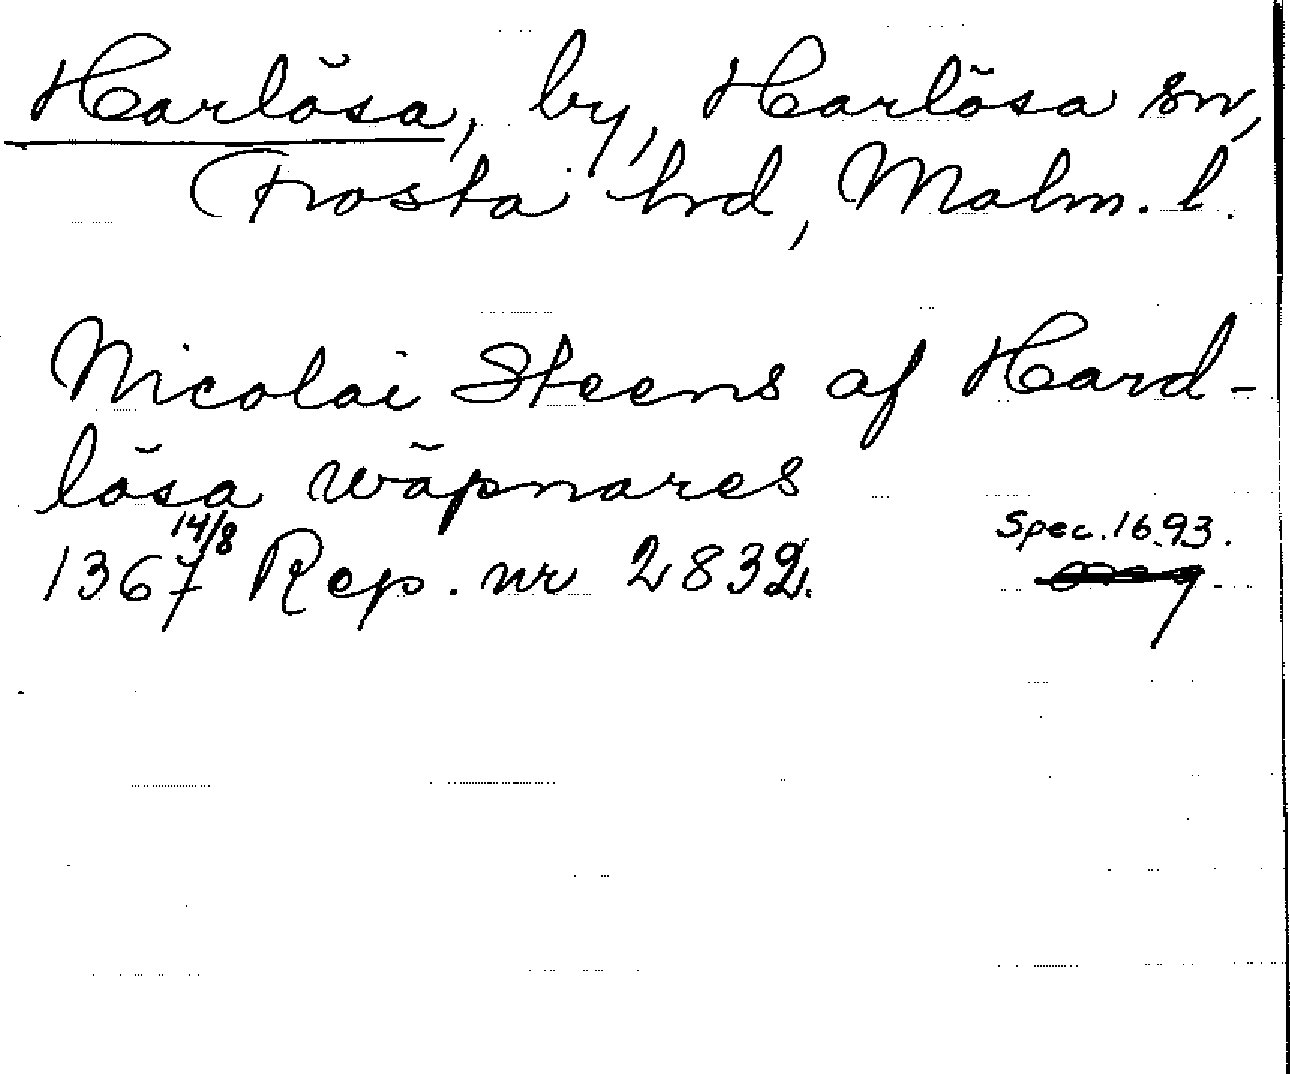 Harlösa, by, Harlösa sn,
Frosta hrd, Malm. l.
Nicolai Steens af Hard-
lösa wäpnares
14/8 Spec. 1693.
1367 Rep. nr 2832.